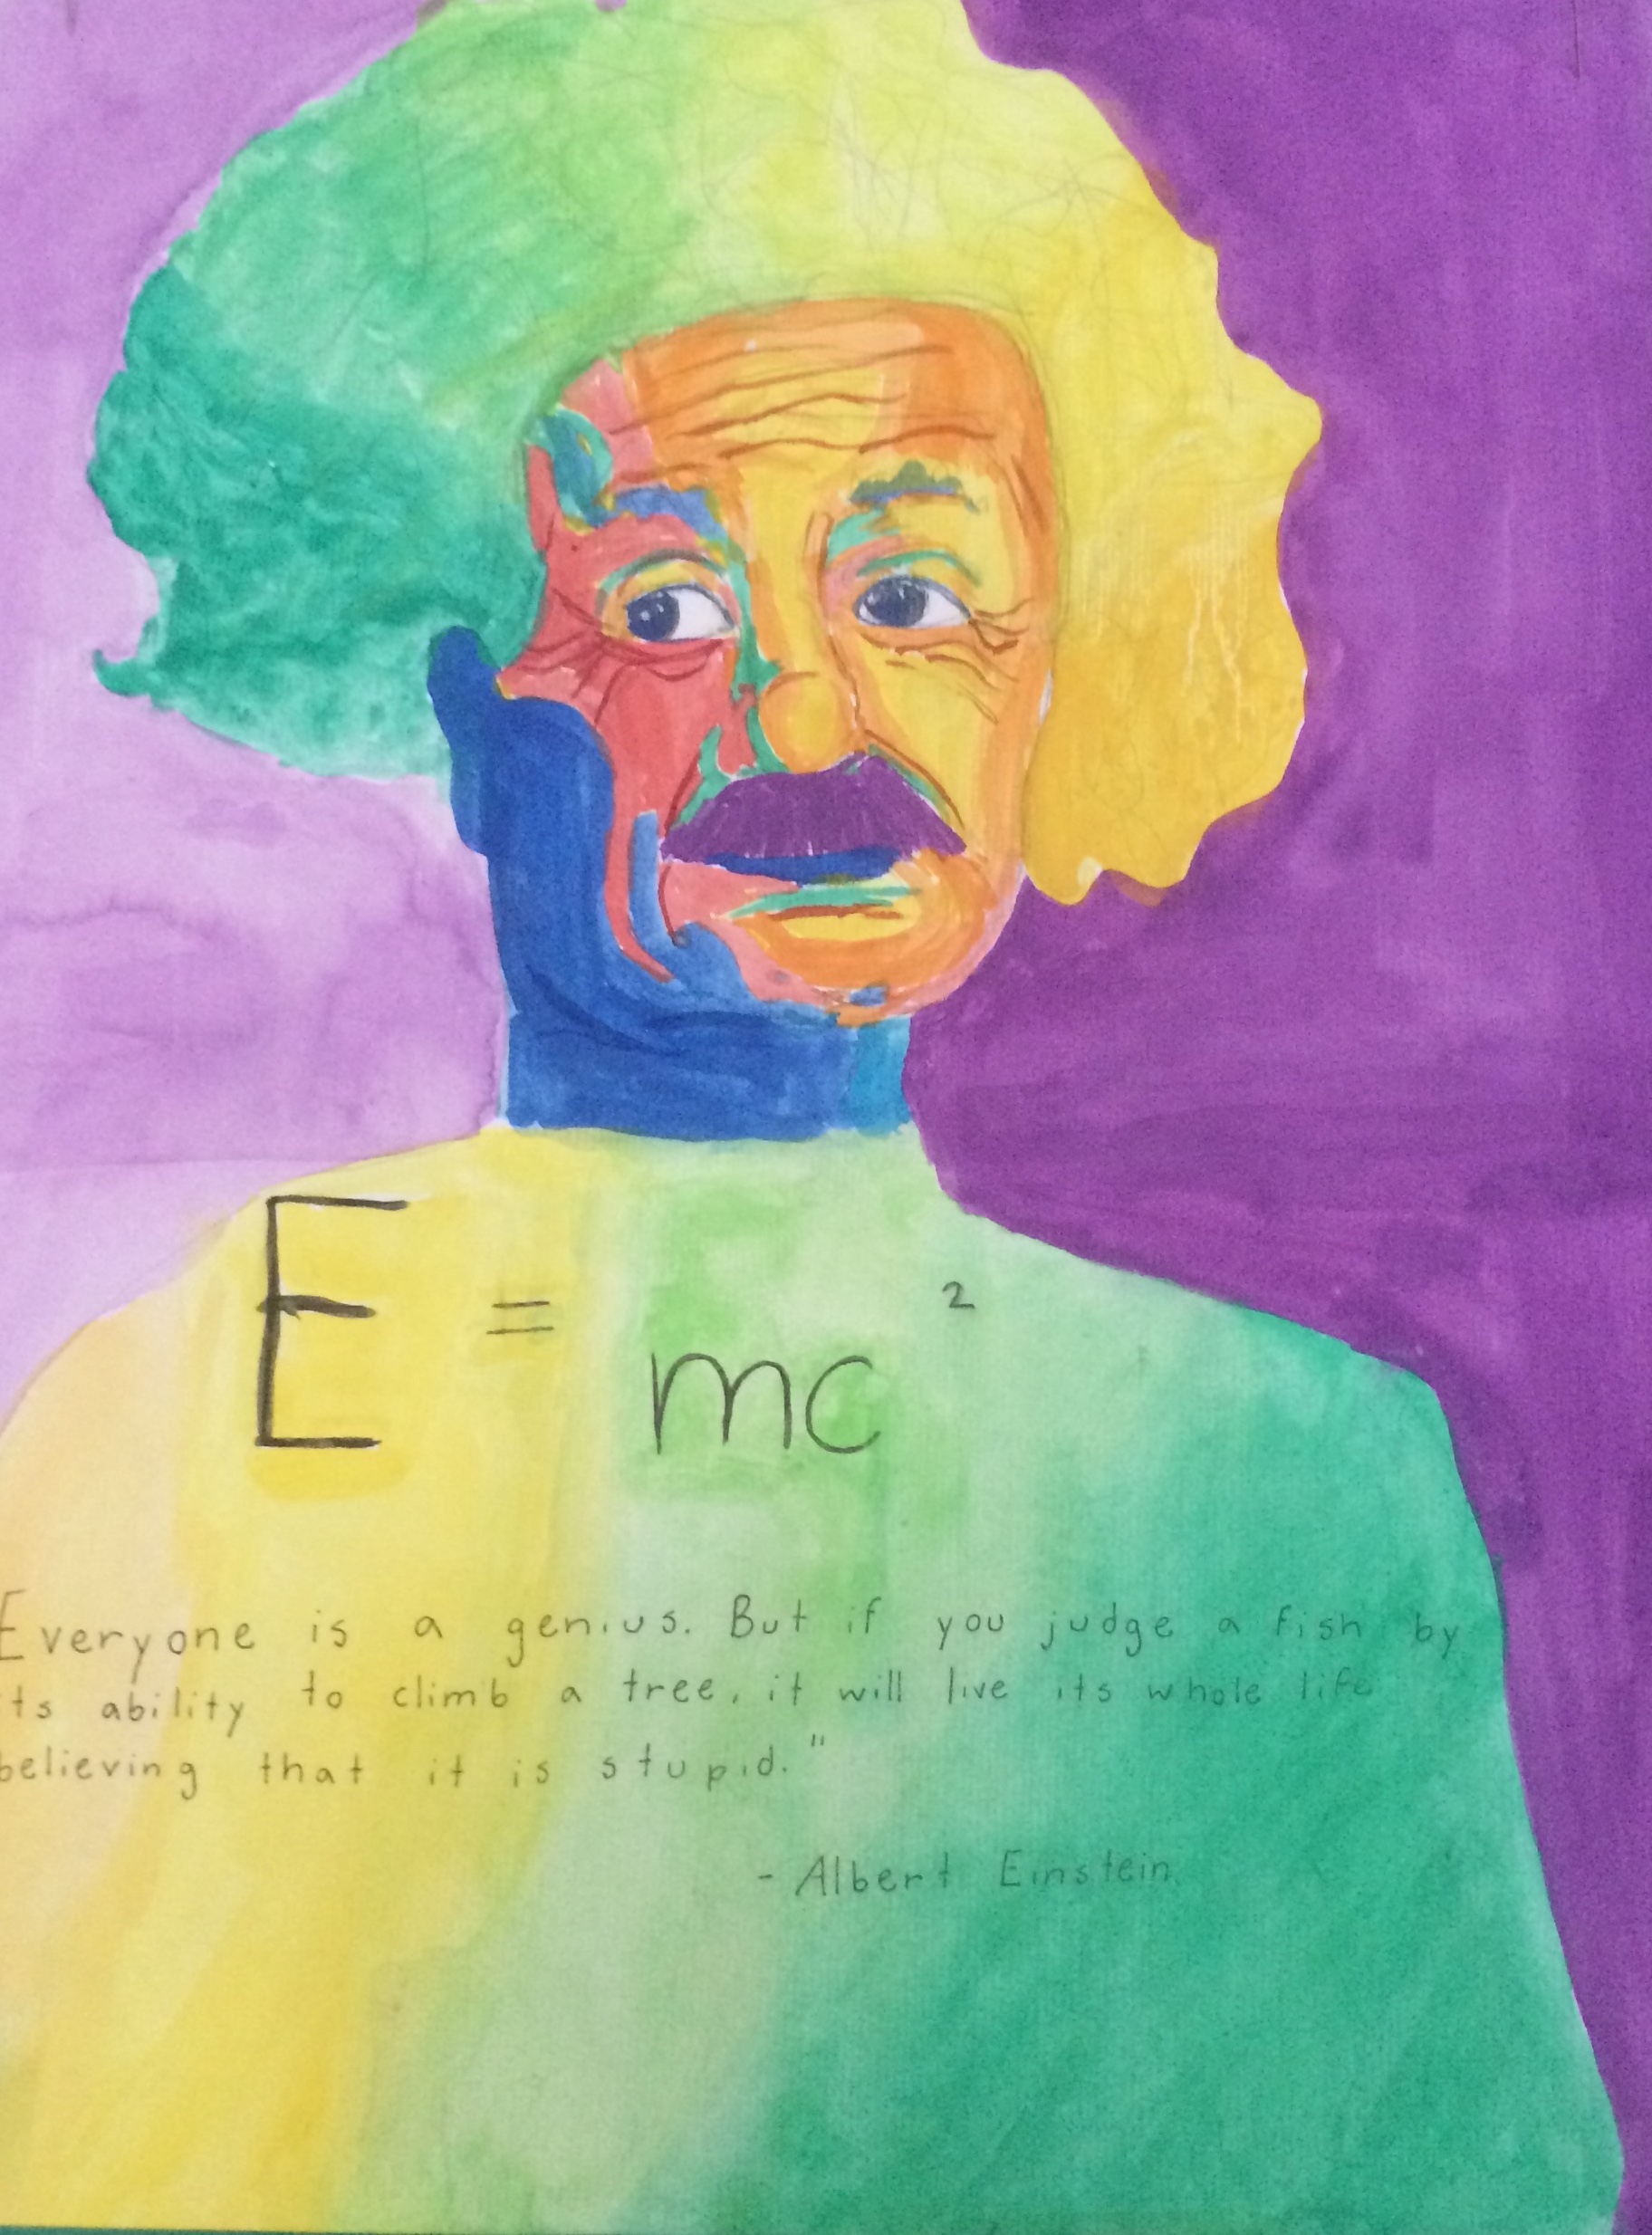 E = mc²
Everyone is a genius. But if you judge a fish by
ts ability to climb a tree, it will live its whole life
believing that it is stupid."
- Albert Einstein